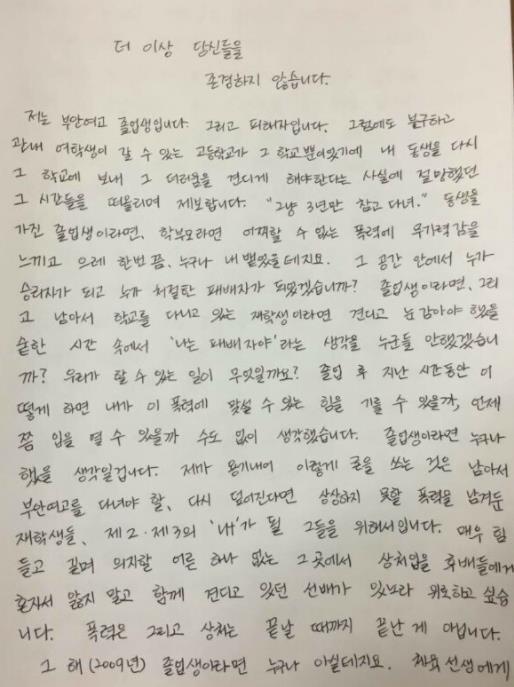 더 이상 당신들을
존경하지 않습니다.
저는 부안여고 졸업생입니다. 그리고 피해자입니다. 그럼에도 불구하고
관내 여학생이 갈 수 있는 고등학교가 그 학교뿐이었기에 내 동생을 다시
그 학교에 보내 그 더러움을 견디게 해야한다는 사실에 절망했던
그 시간들을 떠올리며 제보합니다. "그냥 3년만 참고 다녀." 동생을
가진 졸업생이라면, 학부모라면 어찌할 수 없는 폭력에 무기력감을
느끼고 으레 한번 쯤, 누구나 내뱉었을테지요. 그 공간 안에서 누가
승리자가 되고 누가 처절한 패배자가 되었겠습니까? 졸업생이라면, 그리
고 남아서 학교를 다니고 있는 재학생이라면 견디고 눈감아야 했을
숱한 시간 속에서 '나는 패배자야'라는 생각을 누군들 안했겠습니
까? 우리가 할 수 있는 일이 무엇일까요? 졸업 후 지난 시간동안 어
떻게 하면 내가 이 폭력에 맞설 수 있는 힘을 기를 수 있을까, 언제
쯤 입을 뗄 수 있을까 수도 없이 생각했습니다. 졸업생이라면 누구나
했을 생각일겁니다. 제가 용기내어 이렇게 글을 쓰는 것은 남아서
부안여고를 다녀야 할, 다시 덮어진다면 상상하지 못할 폭력을 남겨둔
재학생들, 제2·제3의 '내'가 될 그들을 위해서입니다. 매우 힘
들고 길며 의지할 어른 하나 없는 그곳에서 상처입을 후배들에게
혼자서 앓지 말고 함께 견디고 있던 선배가 있노라 위로하고 싶습
니다. 폭력은 그리고 상처는 끝날 때까지 끝난 게 아닙니다.
그 해(2009년) 졸업생이라면 누구나 아실테지요. 체육선생에게